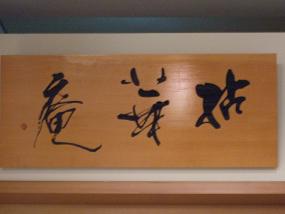 拈華庵